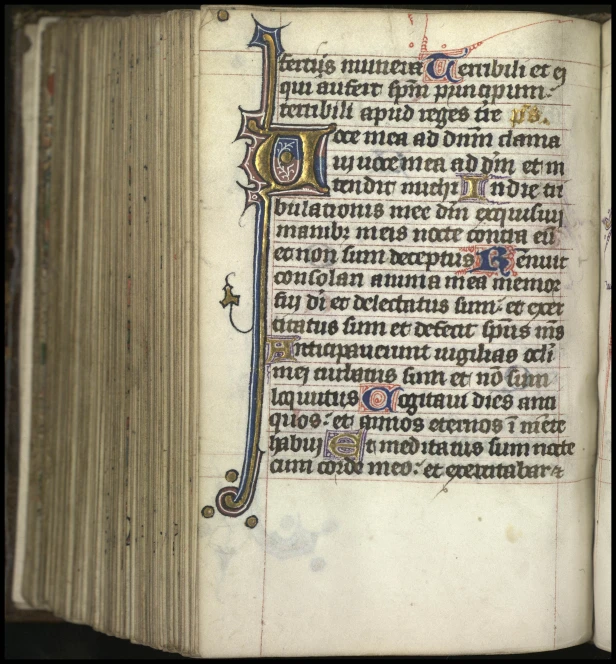 fertis munera Terribili et ei
qui aufert spm principum:
terribili apud reges tre ps.
Voce mea ad dnm clama
ui uoce mea ad dm et in
tendit michi In die tri
bulationis mee dm exquisiui
manibz meis nocte contra eu
et non sum deceptus Renuit
consolari anima mea memor
fui di et delectatus sum: et exer
citatus sum et defecit spus ms
Anticipauerunt uigilias ocli
mei turbatus sum et no sum
locutus Cogitaui dies anti
quos: et annos eternos i mete
habui Et meditatus sum nocte
cum corde meo: et exercitabar et